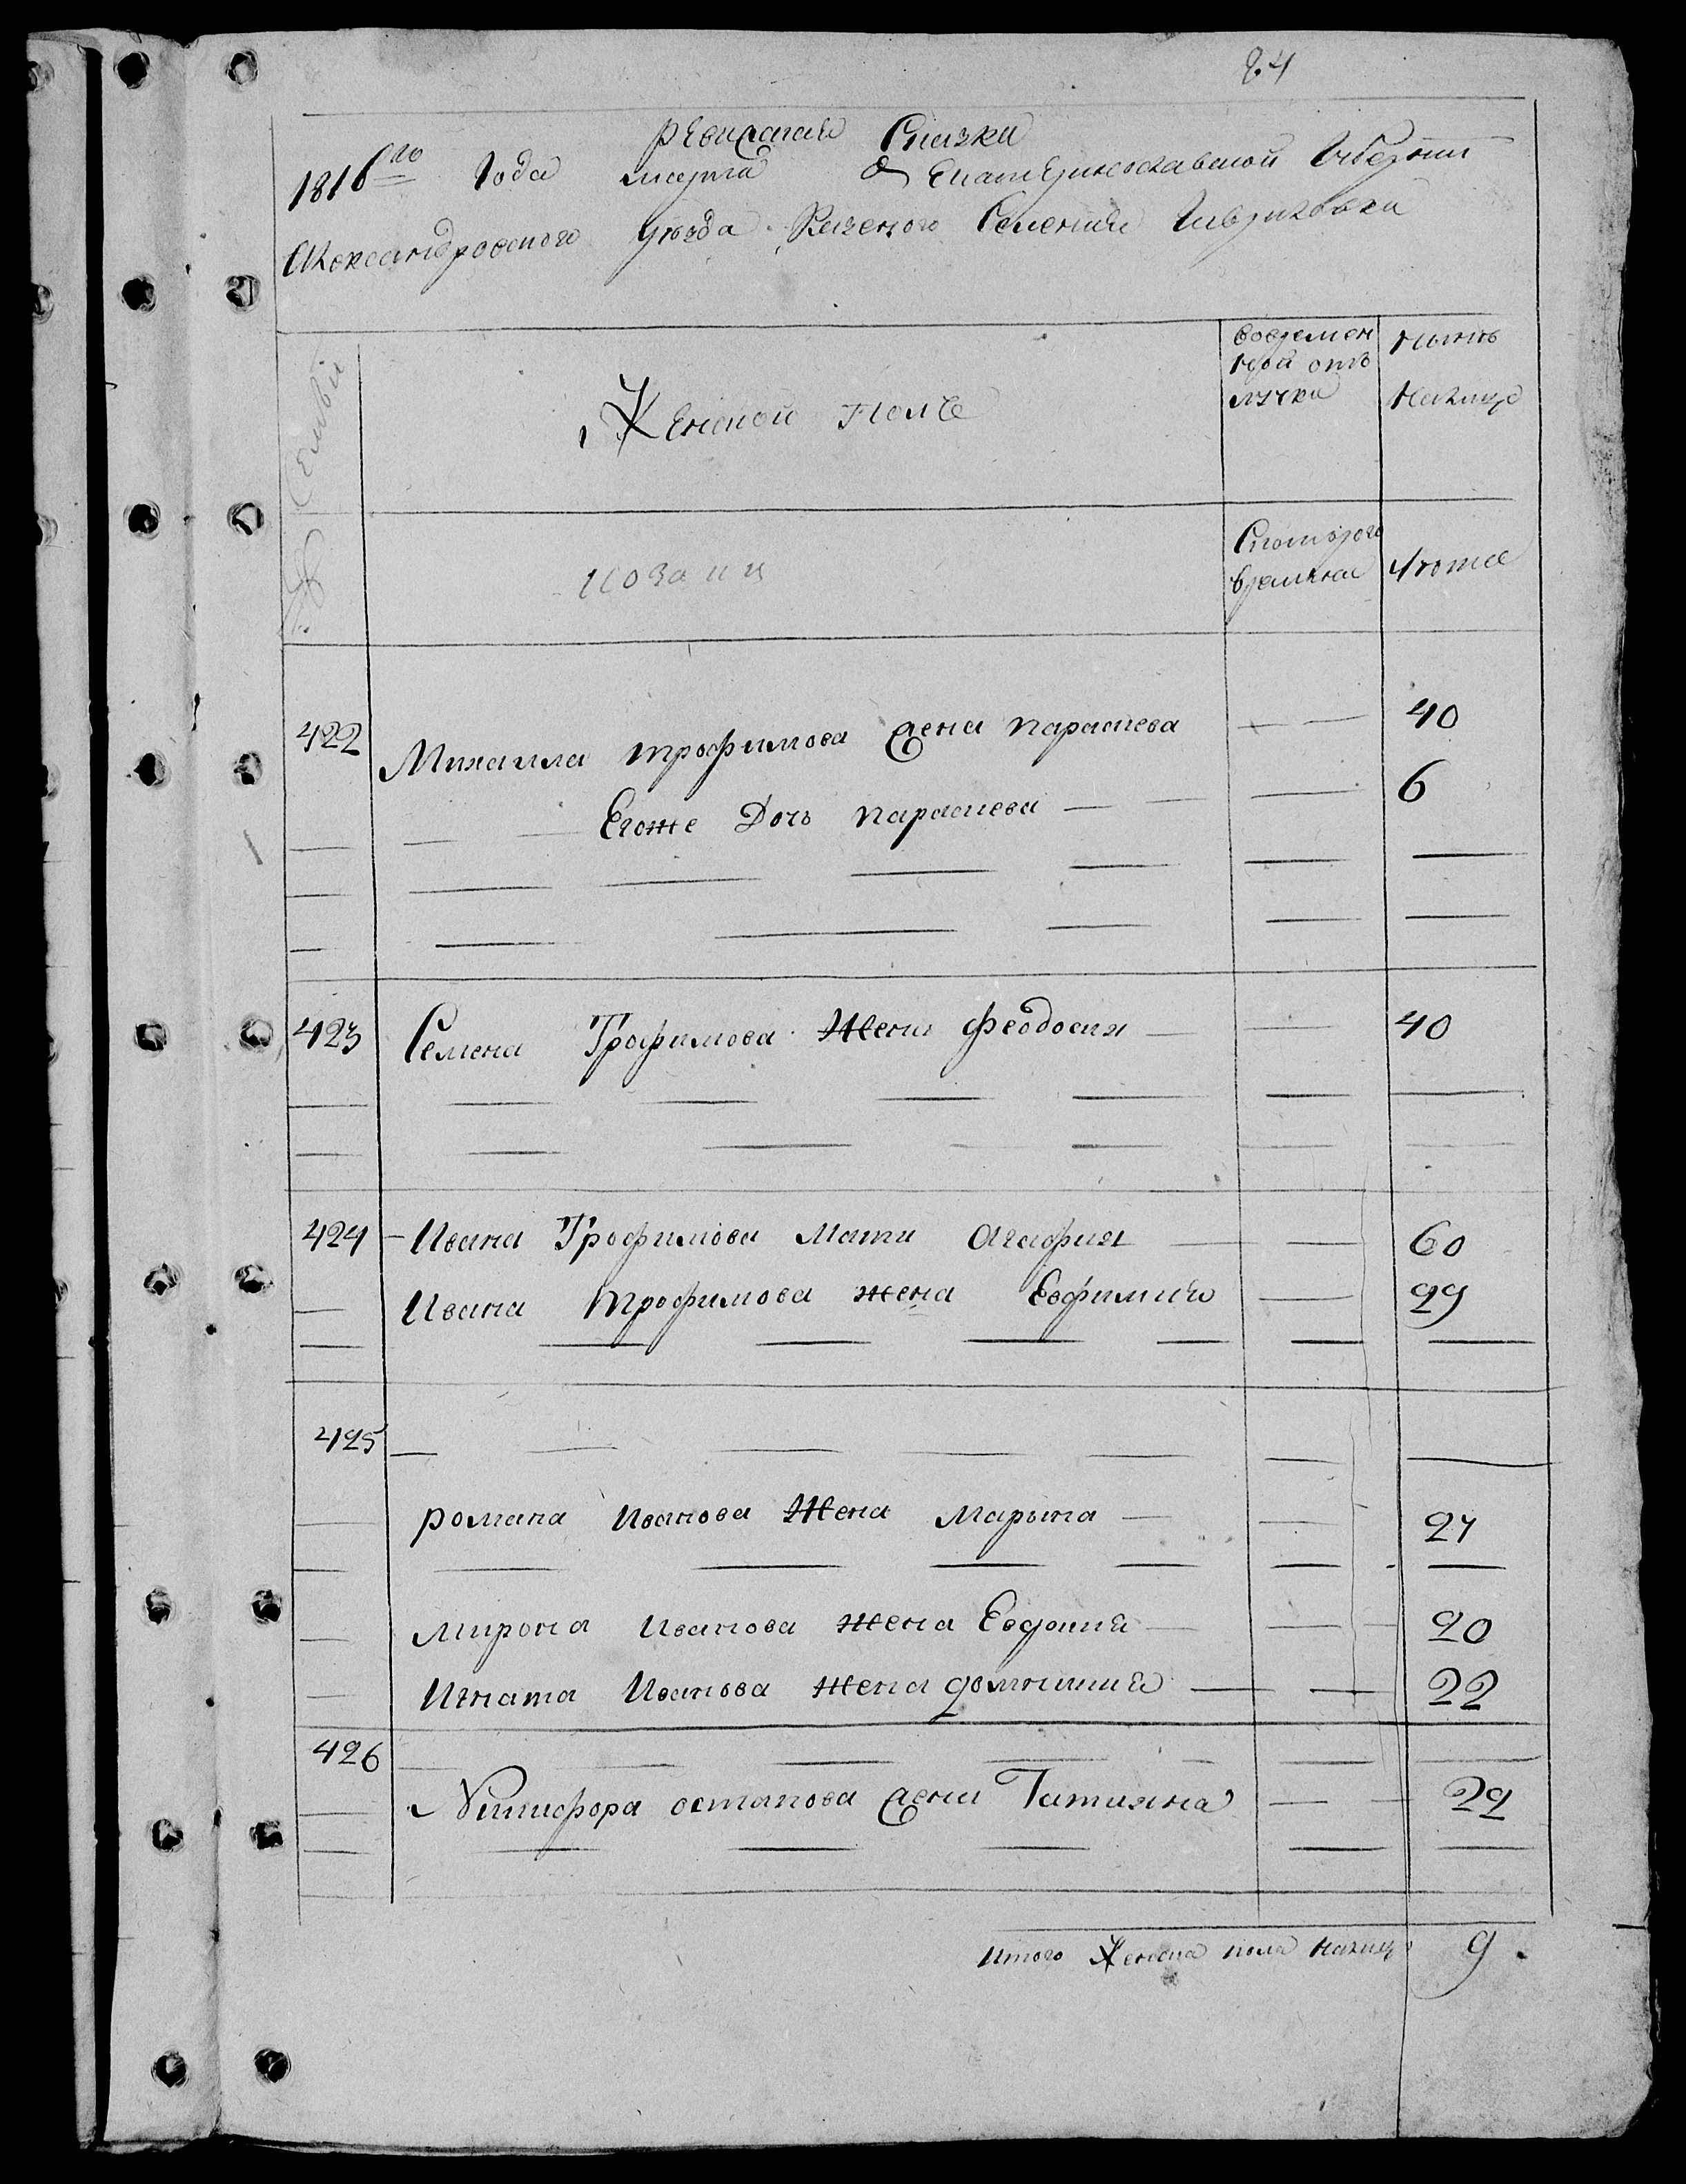 84
ревизская Сказка
1816го Года марта Екатеринославской Губернии
Александровского Уезда Казенного Селения Гавриловки
Семьи
Женской пол
вовремен
ной отъ
лучки
Ныне
На лицо
козаки
С которого
времени
лета
422 Михаила трофимова жена параскева — — 40
Егоже Дочь параскева — — 6
423 Семена Трофимова Жена феодосия — — 40
424 Ивана Трофимова Мати Агафия — — 60
Ивана трофимова жена Евфимия — 29
425
романа Иванова Жена Марына — — 27
мирона Иванова жена Евдокия — — 20
Игната Иванова жена домникия — — 22
426
Никифора остапова жена Татияна — — 22
итого Женска пола налицо 9.